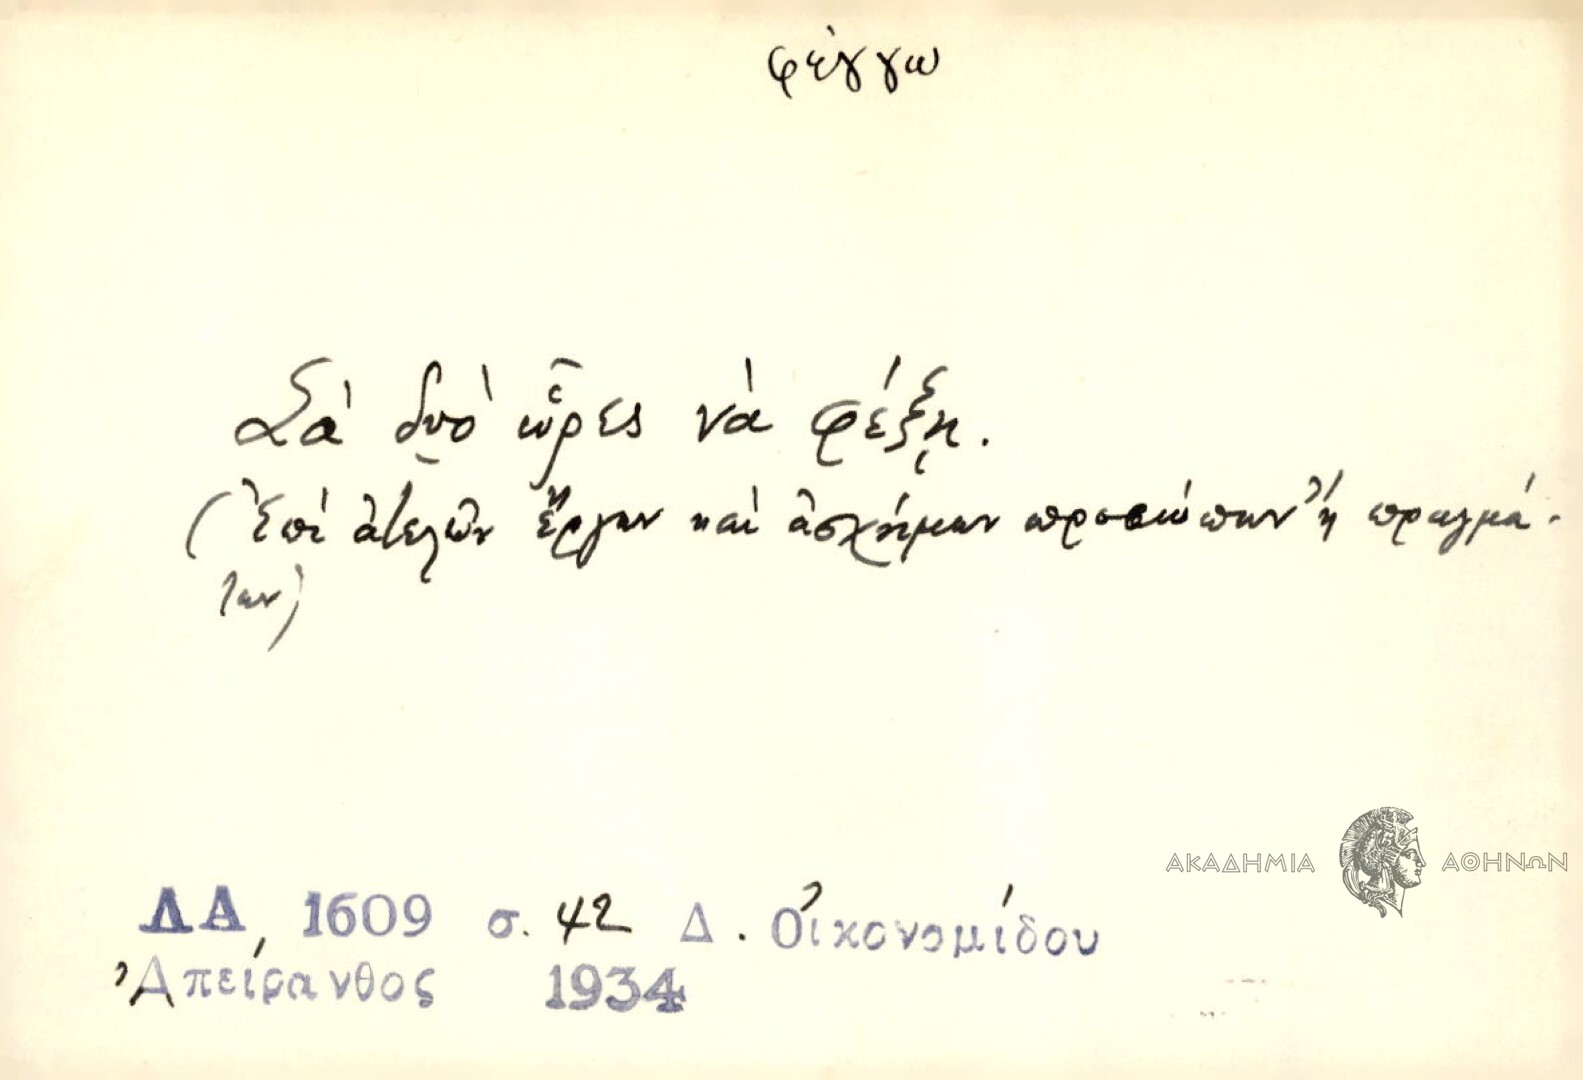 φέγγω
Σὰ δυὸ ὧρες νὰ φέξῃ.
(Ἐπὶ ἀτελῶν ἔργων καὶ ἀσχήμων προσώπων ἢ πραγμά-
των)
ΑΚΑΔΗΜΙΑ ΑΘΗΝΩΝ
ΛΑ, 1609 σ. 42 Δ. Οἰκονομίδου
Ἀπείρανθος 1934